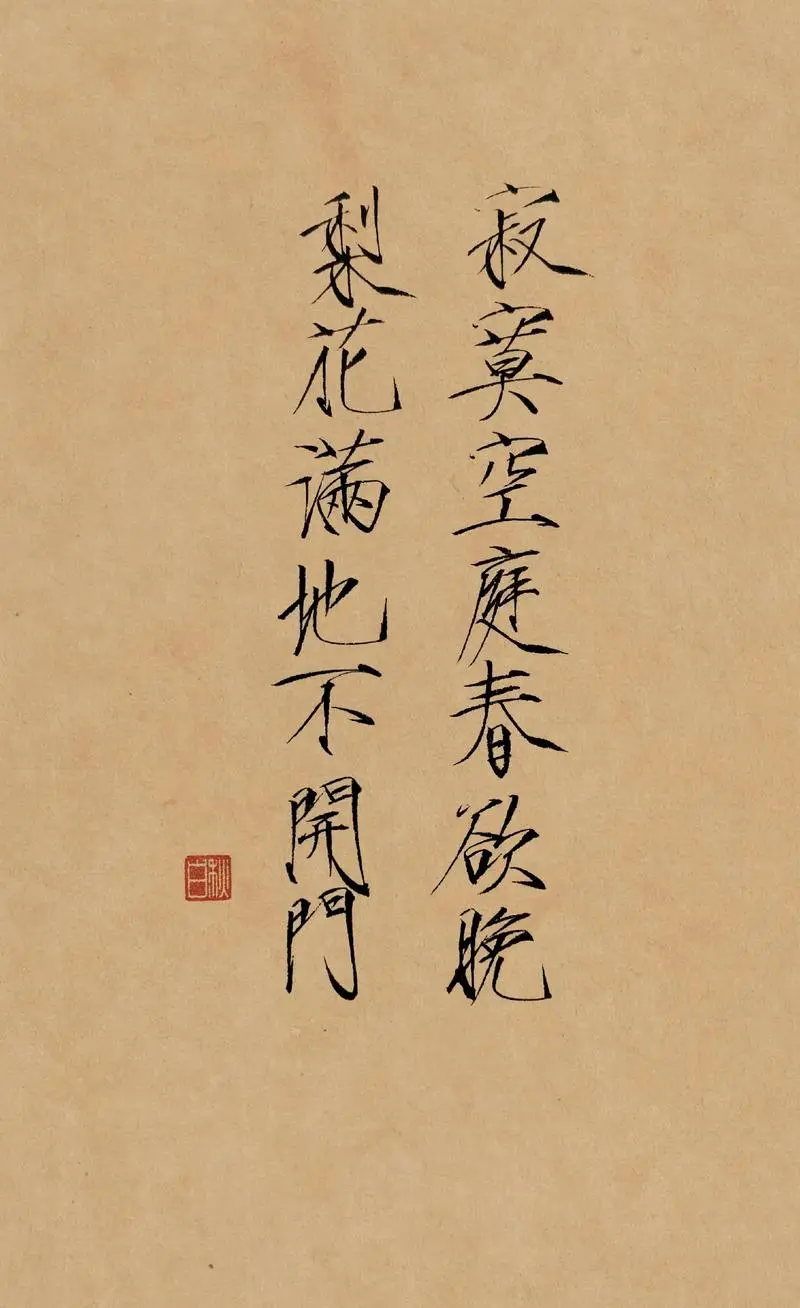 寂寞空庭春欲晚
梨花滿地不開門